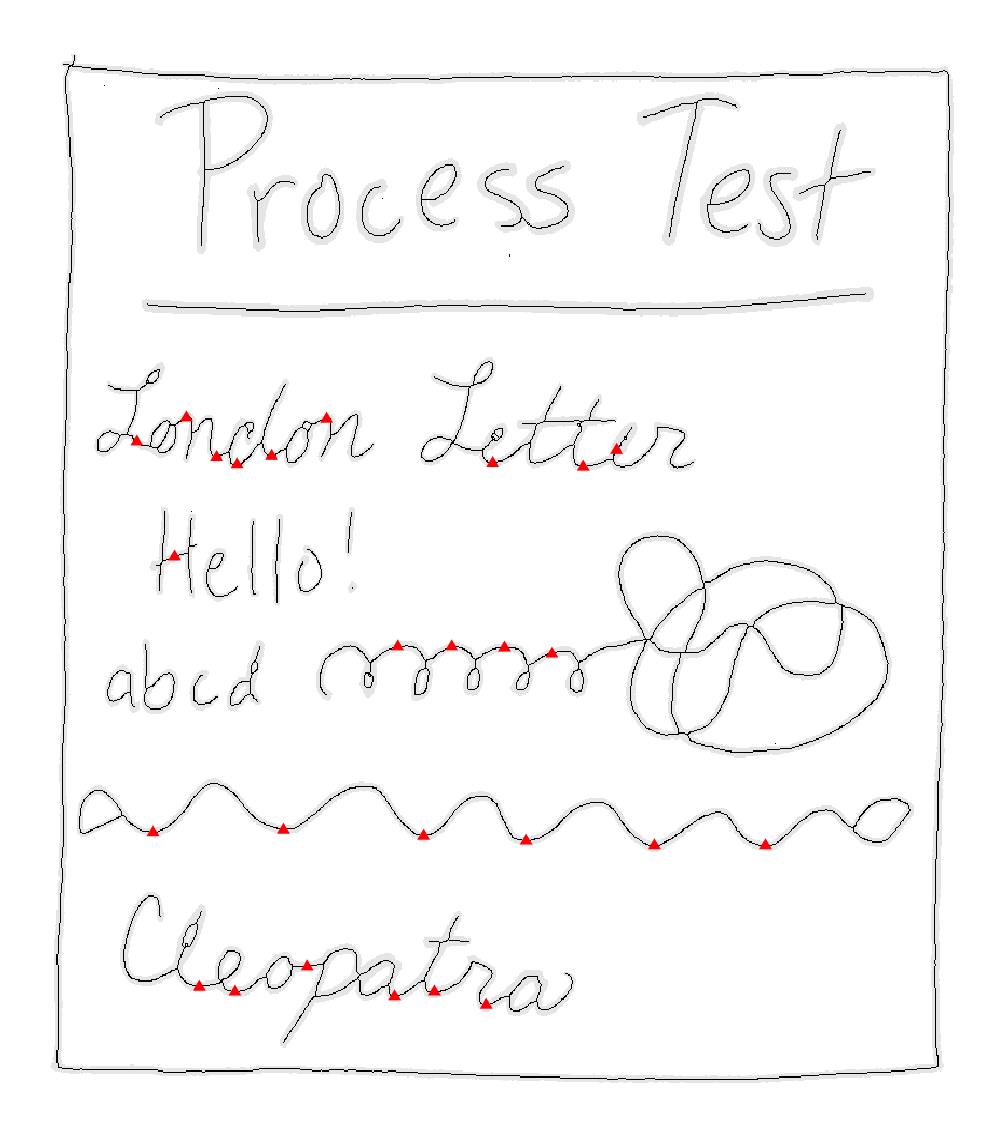 Process Test
London Letter
Hello!
abcd
Cleopatra